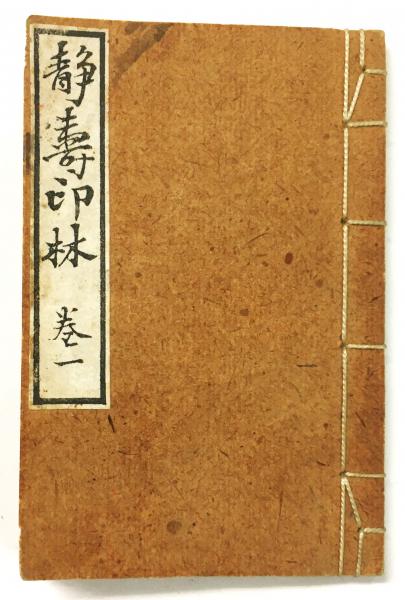 静寿印林 巻一